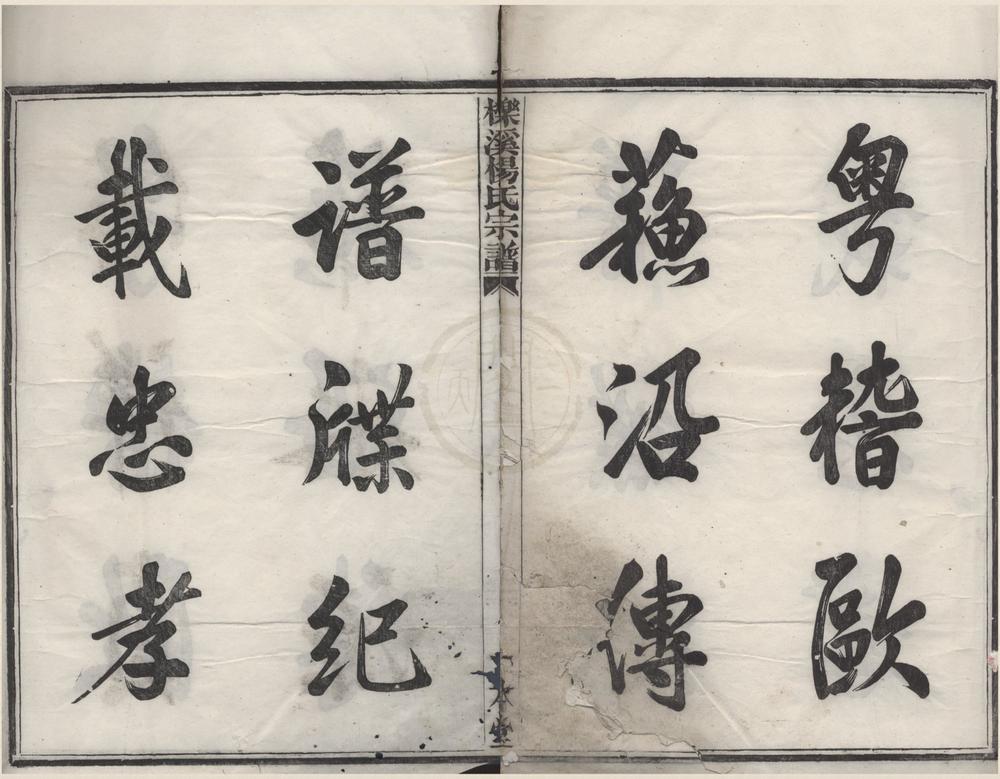 粵稽歐
蘓沿傳
櫟溪楊氏宗譜
本堂
譜牒紀
載忠孝